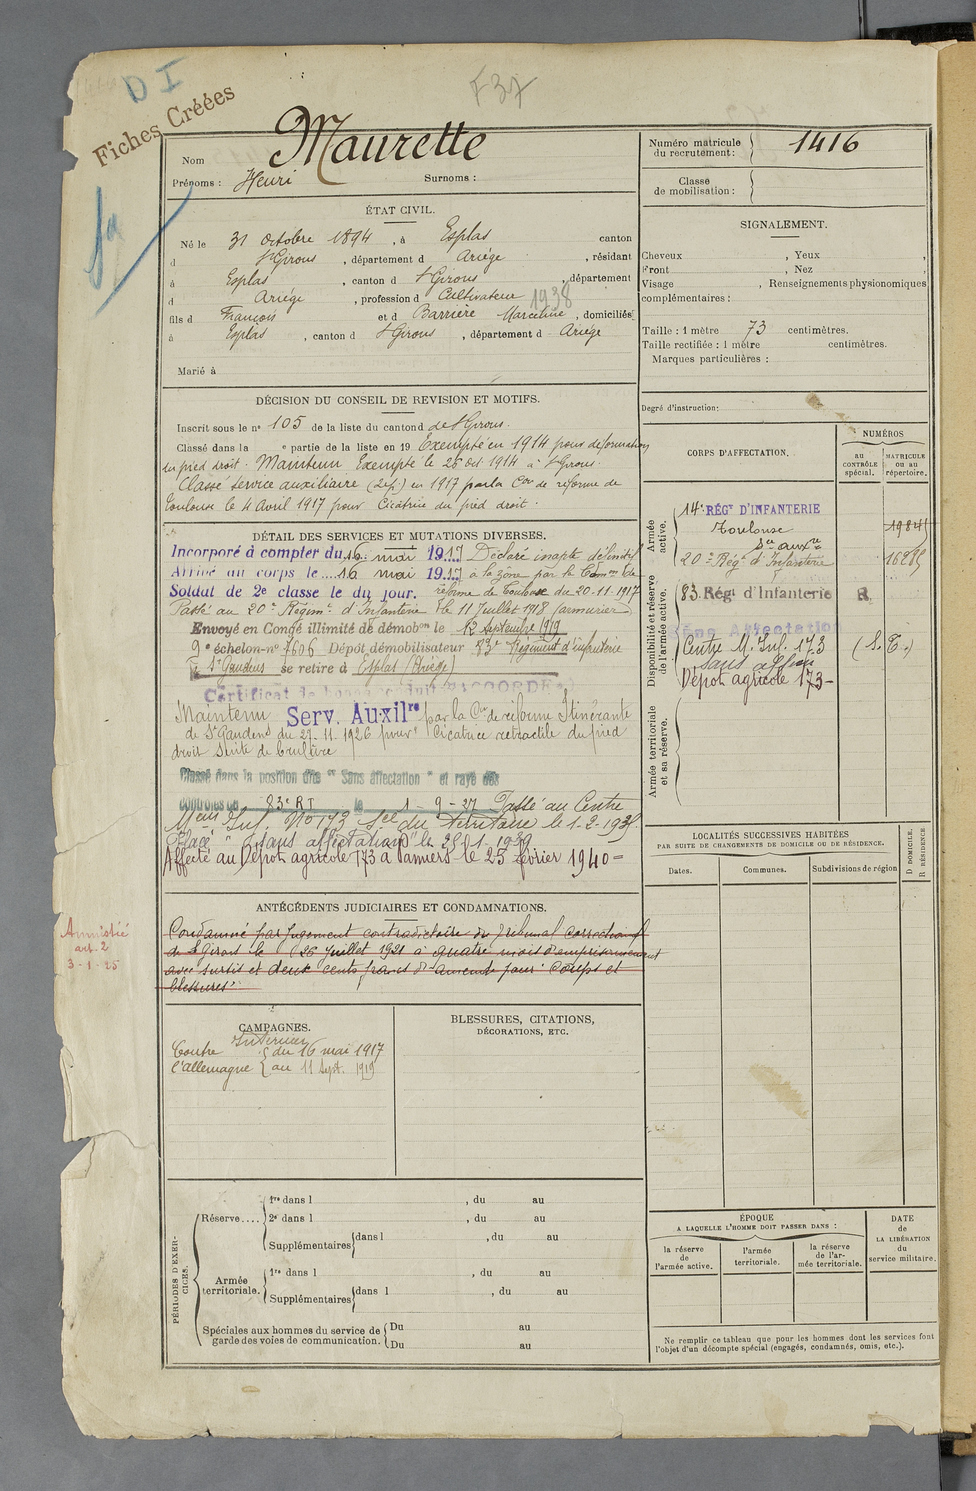 D I
F37
Fiches Créées
Nom Maurette
Prénoms : Henri Surnoms :
ÉTAT CIVIL.
Né le 31 octobre 1894, à Esplas canton
d St Girons, département d Ariège, résidant
à Esplas, canton d St Girons, département
d Ariège, profession d Cultivateur 1938
fils d François et d Barrière Marceline, domiciliés
à Esplas, canton d St Girons, département d Ariège
Marié à
DÉCISION DU CONSEIL DE REVISION ET MOTIFS.
Inscrit sous le n° 105 de la liste du canton d de St Girons.
Classé dans la e partie de la liste en 19 Exempté en 1914 pour déformation
du pied droit. Maintenu Exempté le 26 oct 1914 à St Girons.
Classé service auxiliaire (2e p.) en 1917 par la Con de réforme de
Toulouse le 4 Avril 1917 pour Cicatrice du pied droit.
DÉTAIL DES SERVICES ET MUTATIONS DIVERSES.
Incorporé à compter du 16 mai 1917 Déclaré inapte définitif
Arrivé au corps le 16 mai 1917 à la zône par la Comon de
Soldat de 2e classe le du jour. réforme de Toulouse du 20-11-1917
Passé au 20e Régimt d'Infanterie le 11 Juillet 1918 (armurier)
Envoyé en Congé illimité de démobon le 12 Septembre 1919
9e échelon n° 7606 Dépôt démobilisateur 83e Régiment d'infanterie
à St Gaudens se retire à Esplas (Ariège)
Certificat de bonne conduite ACCORDÉ
Maintenu Serv. Auxilre par la Con de réforme Itinérante
de St Gaudens du 27-11-1926 pour Cicatrice rétractile du pied
droit suite de brulûre
Classé dans la position dite "Sans affectation" et rayé des
contrôles du 83e RI le 1-9-27 Passé au Centre
Meur Inf. No 173 Sce du Territoire le 1-2-193
Placé "sans affectation" le 25 01.1939
Affecté au Dépôt agricole 173 à Pamiers le 25 février 1940=
ANTÉCÉDENTS JUDICIAIRES ET CONDAMNATIONS.
Amnistié
art. 2
3-1-25
Condamné par Jugement contradictoire du Tribunal correctionnel
de St Girons le 26 Juillet 1921 à quatre mois d'emprisonnement
avec sursis et deux cents francs d'amende pour "Coups et
blessures"
CAMPAGNES.
Intérieur
Contre { du 16 mai 1917
l'allemagne { au 11 Sept. 1919
BLESSURES, CITATIONS,
DÉCORATIONS, ETC.
PÉRIODES D'EXERCICES.
Réserve.... 1re dans l , du au
2e dans l , du au
Supplémentaires dans l , du au
Armée territoriale. 1re dans l , du au
Supplémentaires dans l , du au
Spéciales aux hommes du service de garde des voies de communication. Du au
Du au
Numéro matricule
du recrutement : 1416
Classe
de mobilisation :
SIGNALEMENT.
Cheveux , Yeux ,
Front , Nez
Visage , Renseignements physionomiques
complémentaires :
Taille : 1 mètre 73 centimètres.
Taille rectifiée : 1 mètre centimètres.
Marques particulières :
Degré d'instruction :
CORPS D'AFFECTATION.
NUMÉROS
au CONTRÔLE spécial.
MATRICULE ou au répertoire.
Armée active.
14e RÉGt D'INFANTERIE
Toulouse 19841
Sce auxre
20e Régt d'Infanterie 16285
Disponibilité et réserve de l'armée active.
83 Régt d'Infanterie R
Sans Affectation
Centre M. Inf. 173 (S.T.)
Sans affon
Dépôt agricole 173-
Armée territoriale et sa réserve.
LOCALITÉS SUCCESSIVES HABITÉES
PAR SUITE DE CHANGEMENTS DE DOMICILE OU DE RÉSIDENCE.
Dates. Communes. Subdivisions de région
D DOMICILE. R RÉSIDENCE
ÉPOQUE
A LAQUELLE L'HOMME DOIT PASSER DANS :
la réserve de l'armée active.
l'armée territoriale.
la réserve de l'armée territoriale.
DATE de LA LIBÉRATION du service militaire.
Ne remplir ce tableau que pour les hommes dont les services font
l'objet d'un décompte spécial (engagés, condamnés, omis, etc.).